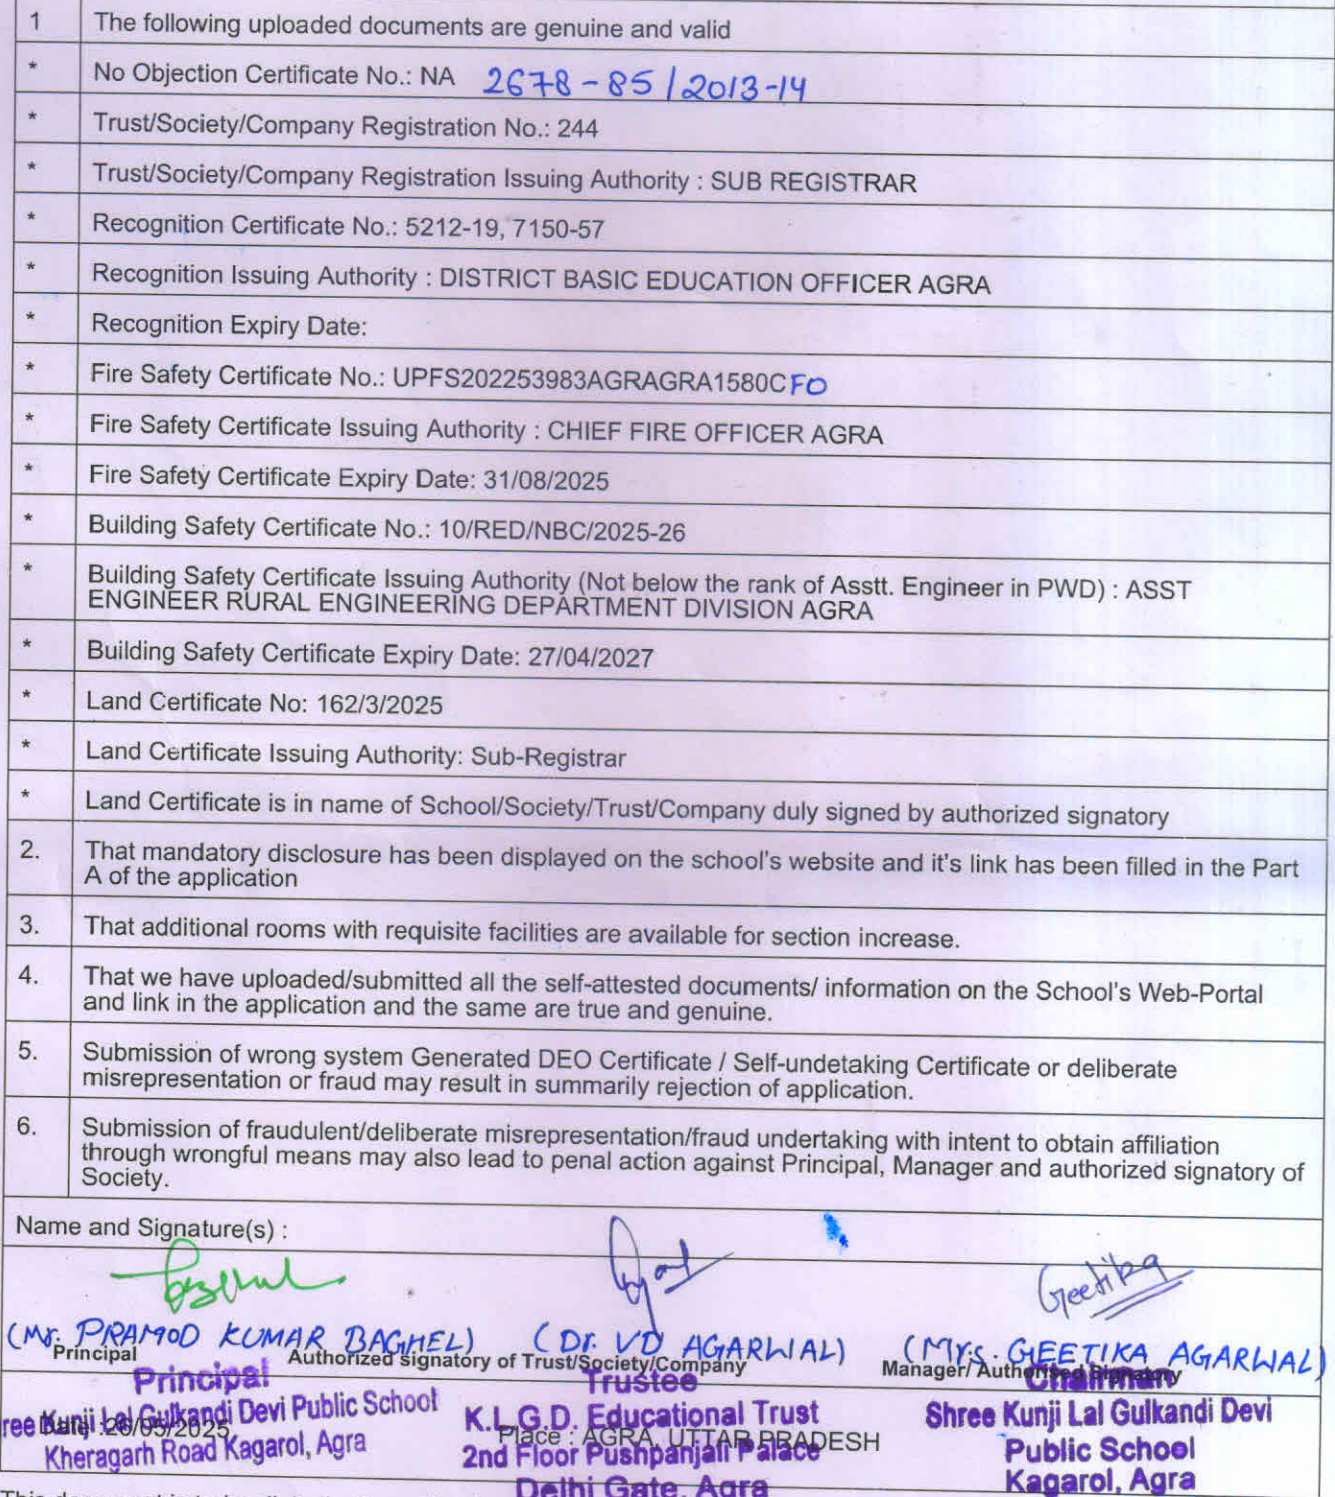 1 The following uploaded documents are genuine and valid
* No Objection Certificate No.: NA 2678-85/2013-14
* Trust/Society/Company Registration No.: 244
* Trust/Society/Company Registration Issuing Authority : SUB REGISTRAR
* Recognition Certificate No.: 5212-19, 7150-57
* Recognition Issuing Authority : DISTRICT BASIC EDUCATION OFFICER AGRA
* Recognition Expiry Date:
* Fire Safety Certificate No.: UPFS202253983AGRAGRA1580CFO
* Fire Safety Certificate Issuing Authority : CHIEF FIRE OFFICER AGRA
* Fire Safety Certificate Expiry Date: 31/08/2025
* Building Safety Certificate No.: 10/RED/NBC/2025-26
* Building Safety Certificate Issuing Authority (Not below the rank of Asstt. Engineer in PWD) : ASST
ENGINEER RURAL ENGINEERING DEPARTMENT DIVISION AGRA
* Building Safety Certificate Expiry Date: 27/04/2027
* Land Certificate No: 162/3/2025
* Land Certificate Issuing Authority: Sub-Registrar
* Land Certificate is in name of School/Society/Trust/Company duly signed by authorized signatory
2. That mandatory disclosure has been displayed on the school's website and it's link has been filled in the Part
A of the application
3. That additional rooms with requisite facilities are available for section increase.
4. That we have uploaded/submitted all the self-attested documents/ information on the School's Web-Portal
and link in the application and the same are true and genuine.
5. Submission of wrong system Generated DEO Certificate / Self-undetaking Certificate or deliberate
misrepresentation or fraud may result in summarily rejection of application.
6. Submission of fraudulent/deliberate misrepresentation/fraud undertaking with intent to obtain affiliation
through wrongful means may also lead to penal action against Principal, Manager and authorized signatory of
Society.
Name and Signature(s) :
Geetika
(Mr. PRAMOD KUMAR BAGHEL) (Dr. VD AGARWAL) (Mrs. GEETIKA AGARWAL)
Principal Authorized signatory of Trust/Society/Company Manager/ Authorised Signatory
Principal Trustee Chairman
ree Kunji Lal Gulkandi Devi Public School K.L.G.D. Educational Trust Shree Kunji Lal Gulkandi Devi
Date : 26/05/2025 Place : AGRA, UTTAR PRADESH
Kheragarh Road Kagarol, Agra 2nd Floor Pushpanjali Palace Public School
Delhi Gate, Agra Kagarol, Agra